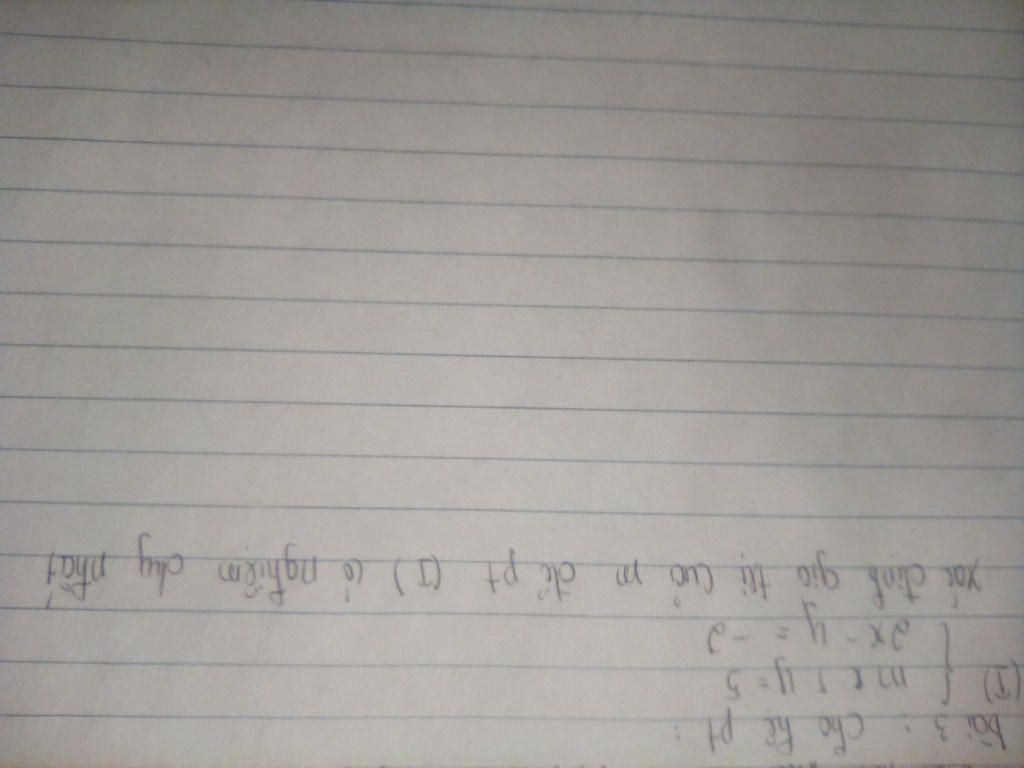 bài 3 : cho hệ pt :
(I) { mx + y = 5
{ 2x - y = -2
xác định giá trị của m để pt (I) có nghiệm duy nhất